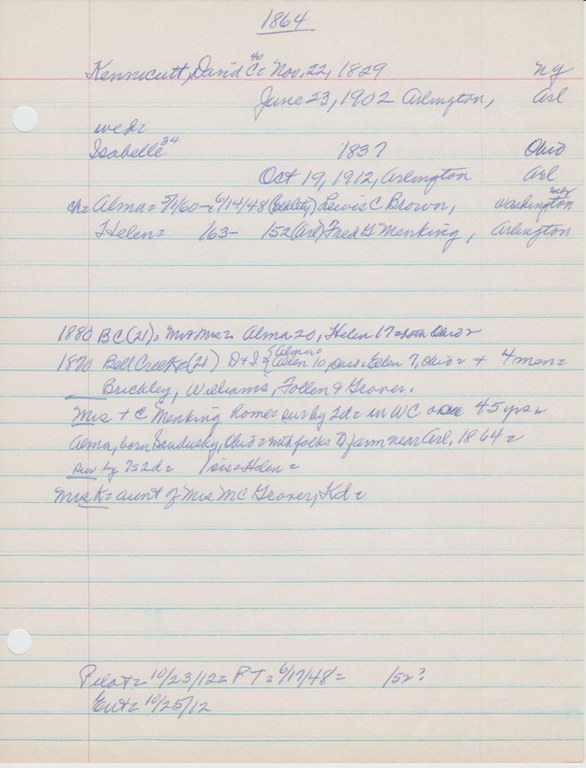 1864
Kennicutt, David C= 40 Nov. 22, 1829 NY
June 23, 1902 Arlington, Arl
wed=
Isabelle 34 1837 Ohio
Oct 19, 1912, Arlington Arl
ch= Alma= 7/1/60- 6/14/48 Lewis C Brown, Washington
Helen= /63- /52 (Arl) Fred G Menking, Arlington
1880 BC (21)= Mr & Mrs= Alma 20, Helen 17= Ohio=
1870 Bell Creek (21) D & I= Alma= 10, Helen 7, Ohio= + 4 men=
Brickley, Williams, Follen & Grover.
Mrs + C Menking home= sur by 2d= in WC 45 yrs=
Alma, born Sandusky, Ohio= with folks to farm near Arl, 1864=
sur by 2d= 1 sis= Helen=
Mrs K= aunt of Mrs MC Grover, Kd=
Pilot= 10/23/12= PT= 6/17/48= /52?
Ent= 10/25/12